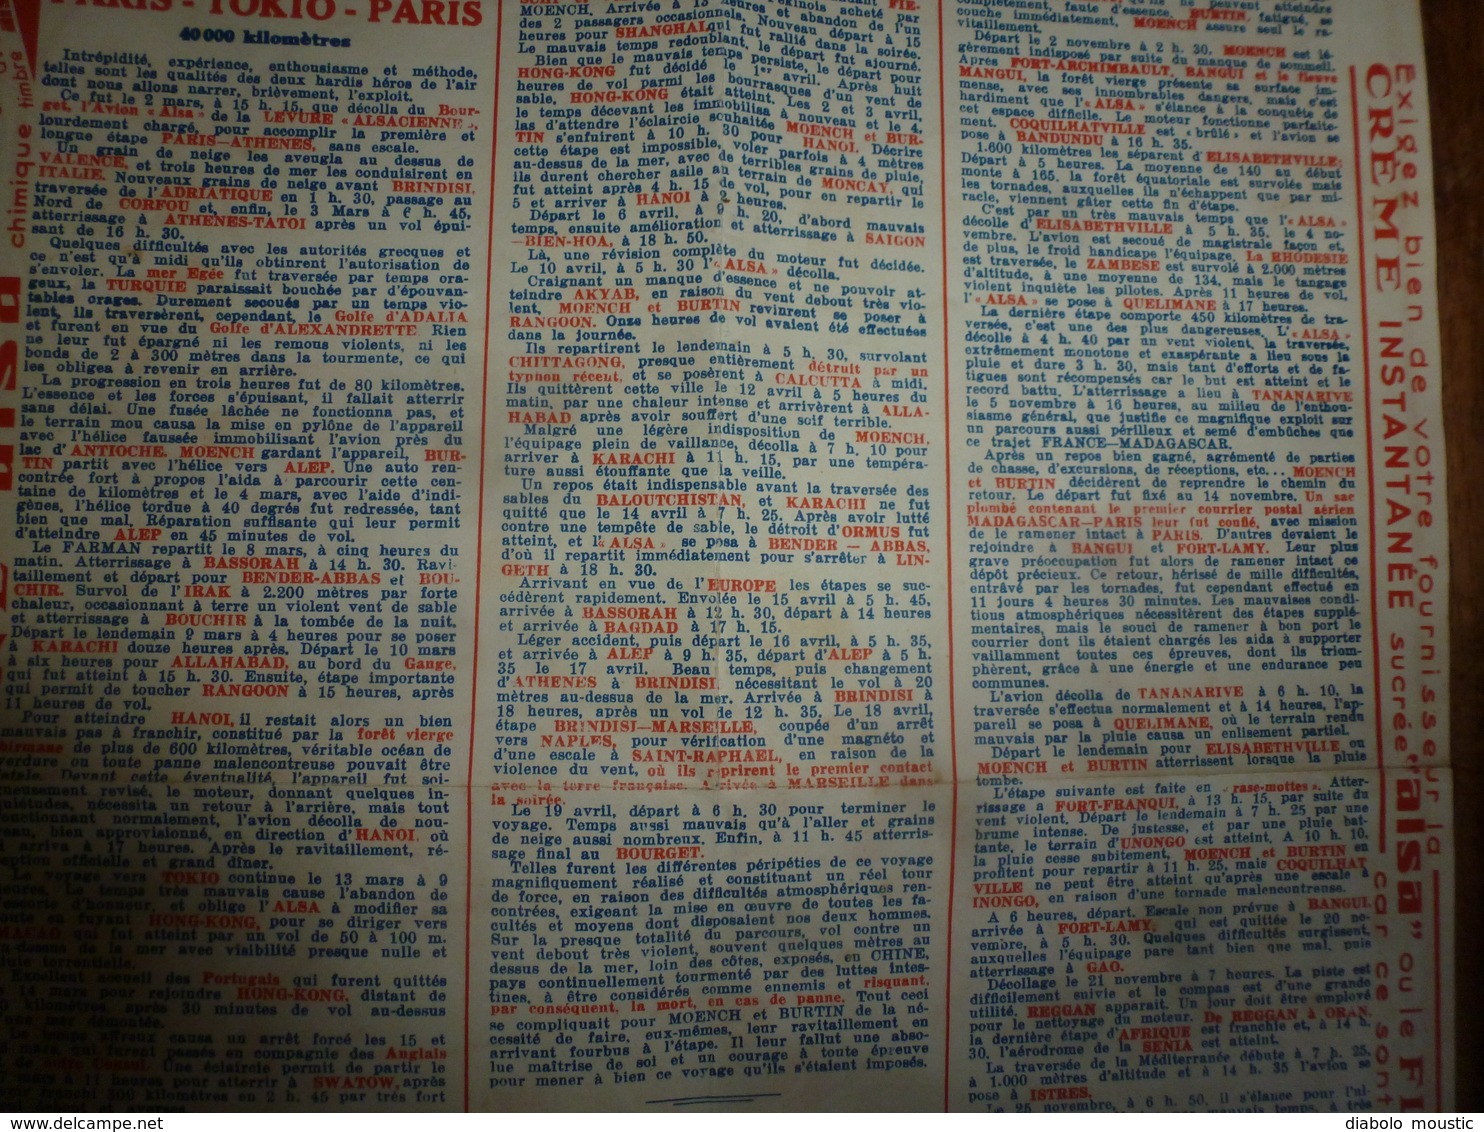 PARIS - TOKIO - PARIS
40 000 kilomètres
Intrépidité, expérience, enthousiasme et méthode,
telles sont les qualités des deux hardis héros de l'air
dont nous allons narrer, brièvement, l'exploit.
Ce fut le 2 mars, à 15 h. 15, que décolla du Bour-
get, l'Avion « Alsa » de la LEVURE « ALSACIENNE »,
lourdement chargé, pour accomplir la première et
longue étape PARIS—ATHENES, sans escale.
Un grain de neige les aveugla au dessus de
VALENCE, et trois heures de mer les conduisirent en
ITALIE. Nouveaux grains de neige avant BRINDISI,
traversée de l'ADRIATIQUE en 1 h. 30, passage au
Nord de CORFOU et, enfin, le 3 Mars à 6 h. 45,
atterrissage à ATHENES-TATOI après un vol épui-
sant de 16 h. 30.
Quelques difficultés avec les autorités grecques et
ce n'est qu'à midi qu'ils obtinrent l'autorisation de
s'envoler. La mer Egée fut traversée par temps ora-
geux, la TURQUIE paraissait bouchée par d'épouvan-
tables orages. Durement secoués par un temps vio-
lent, ils traversèrent, cependant, le Golfe d'ADALIA
et furent en vue du Golfe d'ALEXANDRETTE. Rien
ne leur fut épargné ni les remous violents, ni les
bonds de 2 à 300 mètres dans la tourmente, ce qui
les obligea à revenir en arrière.
La progression en trois heures fut de 80 kilomètres.
L'essence et les forces s'épuisant, il fallait atterrir
sans délai. Une fusée lâchée ne fonctionna pas, et
le terrain mou causa la mise en pylône de l'appareil
avec l'hélice faussée immobilisant l'avion près du
lac d'ANTIOCHE. MOENCH gardant l'appareil, BUR-
TIN partit avec l'hélice vers ALEP. Une auto ren-
contrée fort à propos l'aida à parcourir cette cen-
taine de kilomètres et le 4 mars, avec l'aide d'indi-
gènes, l'hélice tordue à 40 degrés fut redressée, tant
bien que mal. Réparation suffisante qui leur permit
d'atteindre ALEP en 45 minutes de vol.
Le FARMAN repartit le 8 mars, à cinq heures du
matin. Atterrissage à BASSORAH à 14 h. 30. Ravi-
taillement et départ pour BENDER-ABBAS et BOU-
CHIR. Survol de l'IRAK à 2.200 mètres par forte
chaleur, occasionnant à terre un violent vent de sable
et atterrissage à BOUCHIR à la tombée de la nuit.
Départ le lendemain 9 mars à 4 heures pour se poser
à KARACHI douze heures après. Départ le 10 mars
à six heures pour ALLAHABAD, au bord du Gange,
qui fut atteint à 15 h. 30. Ensuite, étape importante
qui permit de toucher RANGOON à 15 heures, après
11 heures de vol.
Pour atteindre HANOI, il restait alors un bien
mauvais pas à franchir, constitué par la forêt vierge
birmane de plus de 600 kilomètres, véritable océan de
verdure ou toute panne malencontreuse pouvait être
fatale. Devant cette éventualité, l'appareil fut soi-
gneusement revisé, le moteur, donnant quelques in-
quiétudes, nécessita un retour à l'arrière, mais tout
fonctionnant normalement, l'avion décolla de nou-
veau, bien approvisionné, en direction d'HANOI, où
il arriva à 17 heures. Après le ravitaillement, ré-
ception officielle et grand dîner.
Le voyage vers TOKIO continue le 13 mars à 9
heures. Le temps très mauvais cause l'abandon de
l'escorte d'honneur, et oblige l'ALSA à modifier sa
route en fuyant HONG-KONG, pour se diriger vers
MACAO qui fut atteint par un vol de 50 à 100 m.
au-dessus de la mer avec visibilité presque nulle et
pluie torrentielle.
Excellent accueil des Portugais qui furent quittés
le 14 mars pour rejoindre HONG-KONG, distant de
kilomètres, après 30 minutes de vol au-dessus
mer démontée.
Le temps affreux causa un arrêt forcé les 15 et
mars, qui furent passés en compagnie des Anglais
de notre Consul. Une éclaircie permit de partir le
mars à 11 heures pour atterrir à SWATOW, après
avoir franchi 300 kilomètres en 2 h. 45 par très fort
MOENCH. Arrivée à 13 heures et abandon de l'un
des 2 passagers occasionnels. Nouveau départ à 15
heures pour SHANGHAI qui fut rallié dans la soirée.
Le mauvais temps redoublant, le départ fut ajourné.
Bien que le mauvais temps persiste, le départ pour
HONG-KONG fut décidé le 1er avril. Après huit
heures de vol parmi les bourrasques d'un vent de
sable, HONG-KONG était atteint. Les 2 et 3 avril,
le temps décevant les immobilisa à nouveau et le 4,
las d'attendre l'éclaircie souhaitée MOENCH et BUR-
TIN s'enfuirent à 10 h. 30 pour HANOI. Décrire
cette étape est impossible, voler parfois à 4 mètres
au-dessus de la mer, avec de terribles grains de pluie,
ils durent chercher asile au terrain de MONCAY, qui
fut atteint après 4 h. 15 de vol, pour en repartir le
5 et arriver à HANOI à 2 heures.
Départ le 6 avril, à 9 h. 20, d'abord mauvais
temps, ensuite amélioration et atterrissage à SAIGON
—BIEN-HOA, à 18 h. 50.
Là, une révision complète du moteur fut décidée.
Le 10 avril, à 5 h. 30 l'« ALSA » décolla.
Craignant un manque d'essence et ne pouvoir at-
teindre AKYAB, en raison du vent debout très vio-
lent, MOENCH et BURTIN revinrent se poser à
RANGOON. Onze heures de vol avaient été effectuées
dans la journée.
Ils repartirent le lendemain à 5 h. 30, survolant
CHITTAGONG, presque entièrement détruit par un
typhon récent, et se posèrent à CALCUTTA à midi.
Ils quittèrent cette ville le 12 avril à 5 heures du
matin, par une chaleur intense et arrivèrent à ALLA-
HABAD après avoir souffert d'une soif terrible.
Malgré une légère indisposition de MOENCH,
l'équipage plein de vaillance, décolla à 7 h. 10 pour
arriver à KARACHI à 11 h. 15, par une tempéra-
ture aussi étouffante que la veille.
Un repos était indispensable avant la traversée des
sables du BALOUTCHISTAN, et KARACHI ne fut
quitté que le 14 avril à 7 h. 25. Après avoir lutté
contre une tempête de sable, le détroit d'ORMUS fut
atteint, et l'« ALSA » se posa à BENDER — ABBAS,
d'où il repartit immédiatement pour s'arrêter à LIN-
GETH à 18 h. 30.
Arrivant en vue de l'EUROPE les étapes se suc-
cédèrent rapidement. Envolée le 15 avril à 5 h. 45,
arrivée à BASSORAH à 12 h. 30, départ à 14 heures
et arrivée à BAGDAD à 17 h. 15.
Léger accident, puis départ le 16 avril, à 5 h. 35,
et arrivée à ALEP à 9 h. 35, départ d'ALEP à 5 h.
35 le 17 avril. Beau temps, puis changement
d'ATHENES à BRINDISI, nécessitant le vol à 20
mètres au-dessus de la mer. Arrivée à BRINDISI à
18 heures, après un vol de 12 h. 35. Le 18 avril,
étape BRINDISI—MARSEILLE, coupée d'un arrêt
vers NAPLES, pour vérification d'une magnéto et
d'une escale à SAINT-RAPHAEL, en raison de la
violence du vent, où ils reprirent le premier contact
avec la terre française. Arrivée à MARSEILLE dans
la soirée.
Le 19 avril, départ à 6 h. 30 pour terminer le
voyage. Temps aussi mauvais qu'à l'aller et grains
de neige aussi nombreux. Enfin, à 11 h. 45 atterris-
sage final au BOURGET.
Telles furent les différentes péripéties de ce voyage
magnifiquement réalisé et constituant un réel tour
de force, en raison des difficultés atmosphériques ren-
contrées, exigeant la mise en œuvre de toutes les fa-
cultés et moyens dont disposaient nos deux hommes.
Sur la presque totalité du parcours, vol contre un
vent debout très violent, souvent quelques mètres au
dessus de la mer, loin des côtes, exposés, en CHINE,
pays continuellement tourmenté par des luttes intes-
tines, à être considérés comme ennemis et risquant,
par conséquent, la mort, en cas de panne. Tout ceci
se compliquait pour MOENCH et BURTIN de la né-
cessité de faire, eux-mêmes, leur ravitaillement en
arrivant fourbus à l'étape. Il leur fallut une abso-
lue maîtrise de soi et un courage à toute épreuve
pour mener à bien ce voyage qu'ils s'étaient imposés.
complètement, faute d'essence. BURTIN, fatigué, se
couche immédiatement, MOENCH assure seul le ra-
vitaillement.
Départ le 2 novembre à 2 h. 30. MOENCH est lé-
gèrement indisposé par suite du manque de sommeil.
Après FORT-ARCHIMBAULT, BANGUI et le fleuve
MANGUI, la forêt vierge présente sa surface im-
mense, avec ses innombrables dangers, mais c'est
hardiment que l'« ALSA » s'élance à la conquête de
cet espace difficile. Le moteur fonctionne parfaite-
ment. COQUILHATVILLE est « brûlé » et l'avion se
pose à BANDUNDU à 16 h. 35.
1.600 kilomètres les séparent d'ELISABETHVILLE:
Départ à 5 heures. La moyenne de 140 au début
monte à 165, la forêt équatoriale est survolée mais
les tornades, auxquelles ils n'échappent que par mi-
racle, viennent gâter cette fin d'étape.
C'est par un très mauvais temps que l'« ALSA »
décolle d'ELISABETHVILLE à 5 h. 35, le 4 no-
vembre. L'avion est secoué de magistrale façon et,
de plus, le froid handicape l'équipage. La RHODESIE
est traversée, le ZAMBESE est survolé à 2.000 mètres
d'altitude, à une moyenne de 134, mais le tangage
violent inquiète les pilotes. Après 11 heures de vol,
l'« ALSA » se pose à QUELIMANE à 17 heures.
La dernière étape comporte 450 kilomètres de tra-
versée, c'est une des plus dangereuses. L'« ALSA »
décolle à 4 h. 40 par un vent violent, la traversée,
extrêmement monotone et exaspérante a lieu sous la
pluie et dure 3 h. 30, mais tant d'efforts et de fa-
tigues sont récompensés car le but est atteint et le
record battu. L'atterrissage a lieu à TANANARIVE
le 5 novembre à 16 heures, au milieu de l'enthou-
siasme général, que justifie ce magnifique exploit sur
un parcours aussi périlleux et semé d'embûches que
ce trajet FRANCE—MADAGASCAR.
Après un repos bien gagné, agrémenté de parties
de chasse, d'excursions, de réceptions, etc... MOENCH
et BURTIN décidèrent de reprendre le chemin du
retour. Le départ fut fixé au 14 novembre. Un sac
plombé contenant le premier courrier postal aérien
MADAGASCAR—PARIS leur fut confié, avec mission
de le ramener intact à PARIS. D'autres devaient le
rejoindre à BANGUI et FORT-LAMY. Leur plus
grave préoccupation fut alors de ramener intact ce
dépôt précieux. Ce retour, hérissé de mille difficultés,
entrâvé par les tornades, fut cependant effectué en
11 jours 4 heures 30 minutes. Les mauvaises condi-
tions atmosphériques nécessitèrent des étapes supplé-
mentaires, mais le souci de ramener à bon port le
courrier dont ils étaient chargés les aida à supporter
vaillamment toutes ces épreuves, dont ils triom-
phèrent, grâce à une énergie et une endurance peu
communes.
L'avion décolla de TANANARIVE à 6 h. 10, la
traversée s'effectua normalement et à 14 heures, l'ap-
pareil se posa à QUELIMANE, où le terrain rendu
mauvais par la pluie causa un enlisement partiel.
Départ le lendemain pour ELISABETHVILLE où
MOENCH et BURTIN atterrissent lorsque la pluie
tombe.
L'étape suivante est faite en « rase-mottes ». Atter-
rissage a FORT-FRANQUI, à 13 h. 15, par suite du
vent violent. Départ le lendemain à 7 h. 25 par une
brume intense. De justesse, et par une pluie bat-
tante, le terrain d'UNONGO est atteint. A 10 h. 10,
la pluie cesse subitement, MOENCH et BURTIN en
profitent pour repartir à 11 h. 25, mais COQUILHAT
VILLE ne peut être atteint qu'après une escale à
INONGO, en raison d'une tornade malencontreuse.
A 6 heures, départ. Escale non prévue à BANGUI,
arrivée à FORT-LAMY, qui est quittée le 20 no-
vembre, à 5 h. 30. Quelques difficultés surgissent,
auxquelles l'équipage pare tant bien que mal, puis
atterrissage à GAO.
Décollage le 21 novembre à 7 heures. La piste est
difficilement suivie et le compas est d'une grande
utilité. REGGAN apparait. Un jour doit être employé
pour le nettoyage du moteur. De REGGAN à ORAN,
la dernière étape d'AFRIQUE est franchie et, à 14 h.
30, l'aérodrome de la SENIA est atteint.
La traversée de la Méditerranée débute à 7 h. 25,
à 1.000 mètres d'altitude et à 14 h. 35 l'avion se
pose à ISTRES.
Le 25 novembre, à 6 h. 50, il s'élance pour l'al-
Exigez bien de votre fournisseur la
CRÈME INSTANTANÉE sucrée "alsa" ou le
car ce sont
chimique
timbre
diabolo moustic